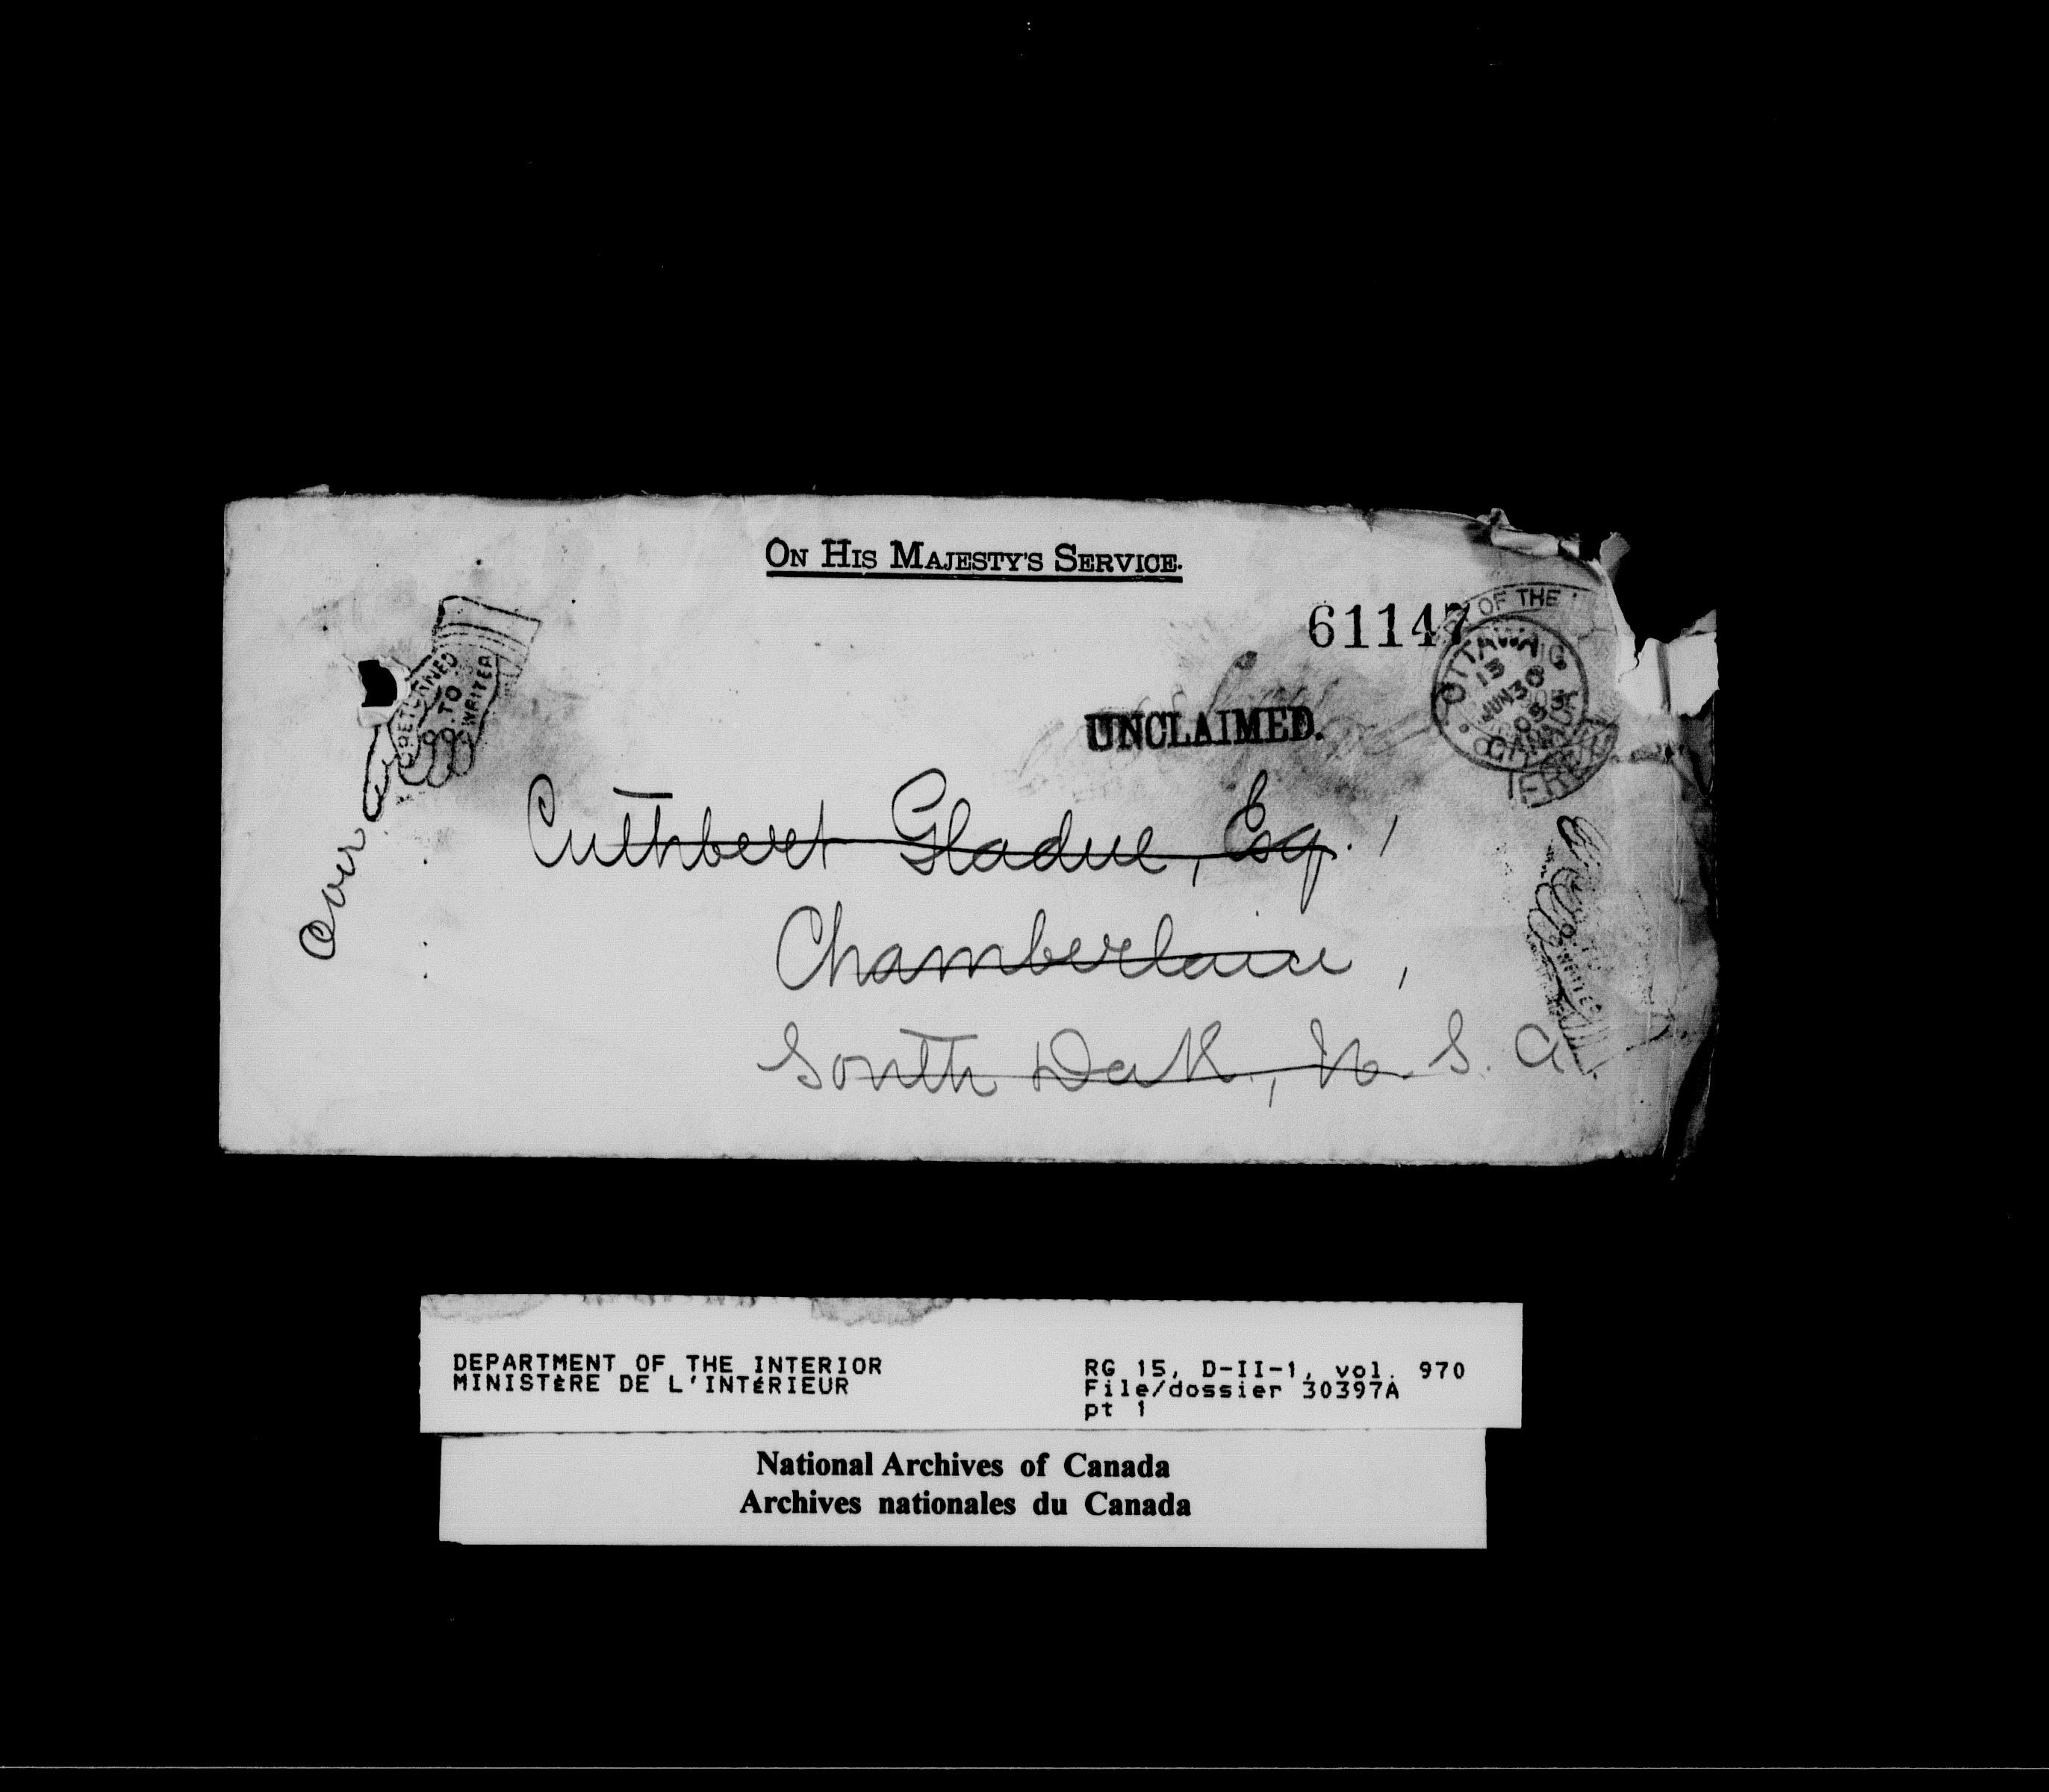 ON HIS MAJESTY'S SERVICE.
61147
OF THE
OTTAWA
13
JUN 30
05
CANADA
RETURNED
TO
WRITER
UNCLAIMED.
over
Cuthbert Gladue, Esq.,
Chamberlain,
South Dak., U. S. A.
DEPARTMENT OF THE INTERIOR
MINISTÈRE DE L'INTÉRIEUR
RG 15, D-II-1, vol. 970
File/dossier 30397A
pt 1
National Archives of Canada
Archives nationales du Canada